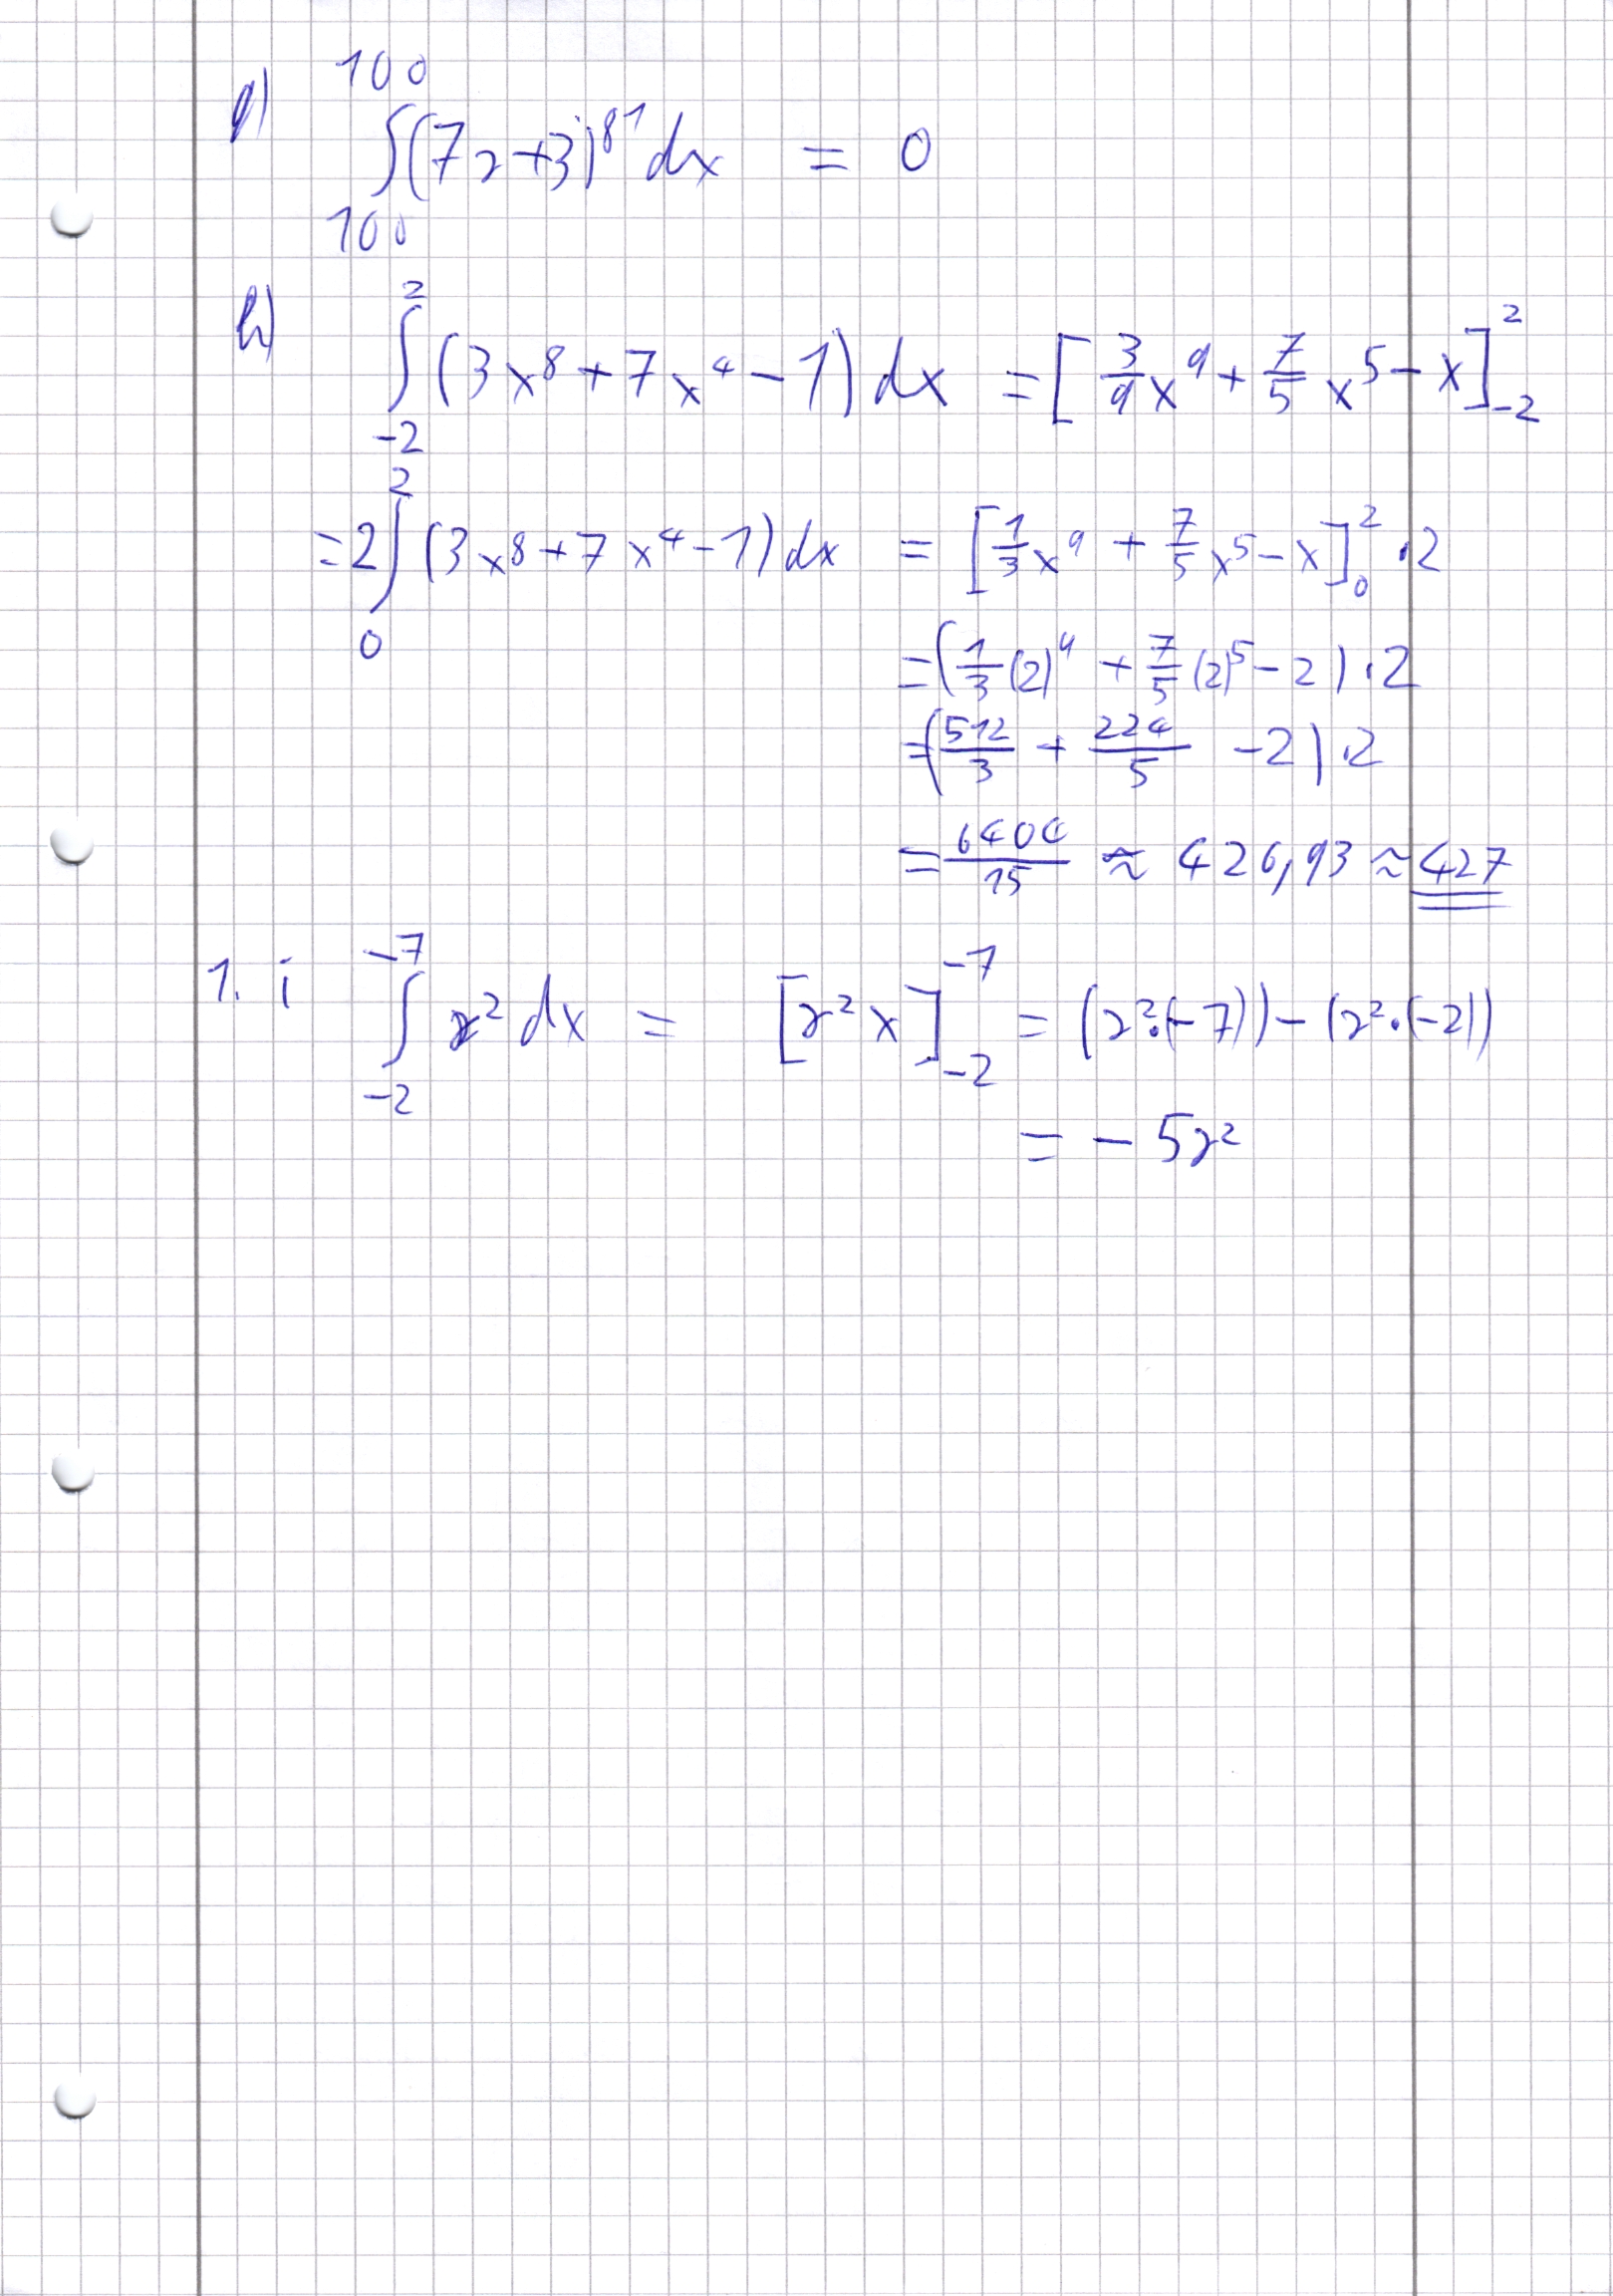 g) ∫₁₀₀¹⁰⁰ (7r+3)⁸¹ dx = 0
h) ∫₋₂² (3x⁸+7x⁴-1) dx = [3/9 x⁹ + 7/5 x⁵ - x]₋₂²
= 2∫₀² (3x⁸+7x⁴-1) dx = [1/3 x⁹ + 7/5 x⁵ - x]₀² · 2
= (1/3 (2)⁹ + 7/5 (2)⁵ - 2) · 2
= (512/3 + 224/5 - 2) · 2
= 6404/15 ≈ 426,93 ≈ 427
1. i ∫₋₂⁻⁷ r² dx = [r² x]₋₂⁻⁷ = (r²·(-7)) - (r²·(-2))
= - 5r²